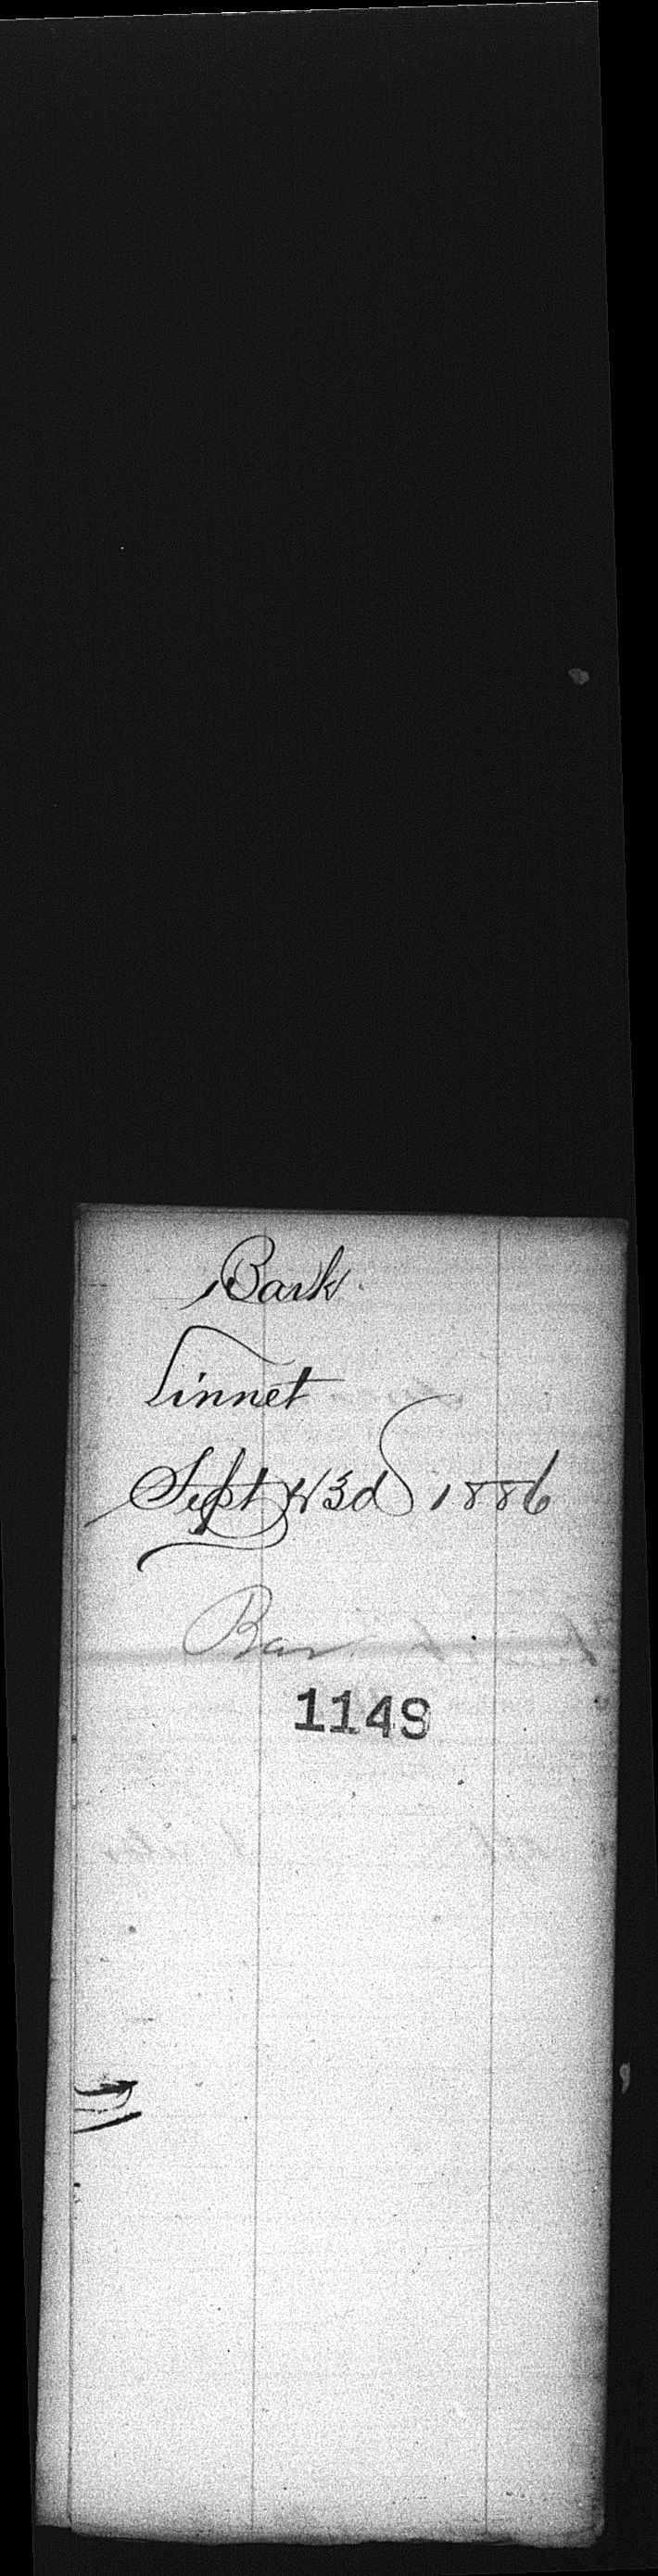 Bark
Linnet
Sept 23d 1886
Bar.
1149